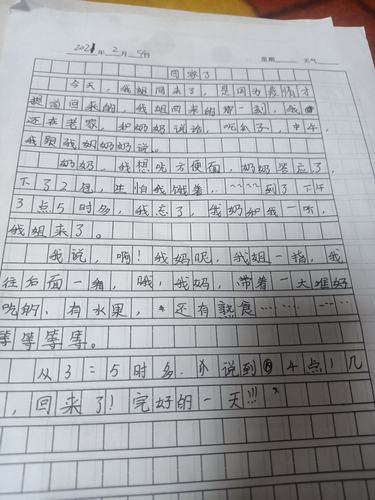 2021年2月4日 星期 天气
回家了
今天,我姐回来了,是因为疫情才
提前回来的,我姐回来的那一刻,我
还在老家,和奶奶说话,吃瓜子,中午,
我跟我奶奶奶说。
奶奶,我想吃方便面,奶奶答应了,
下了2包,生怕我饿着,~~~~到了下午
3点5时多,我忘了,我奶和我一听,
我姐来了。
我说,啊!我妈呢,我姐一指,我
往后面一看,哦,我妈,带着一大堆好
吃的,有水果,还有熟食……………
等等等等。
从3=5时多.说到4点1几
,回来了!完好的一天!!!